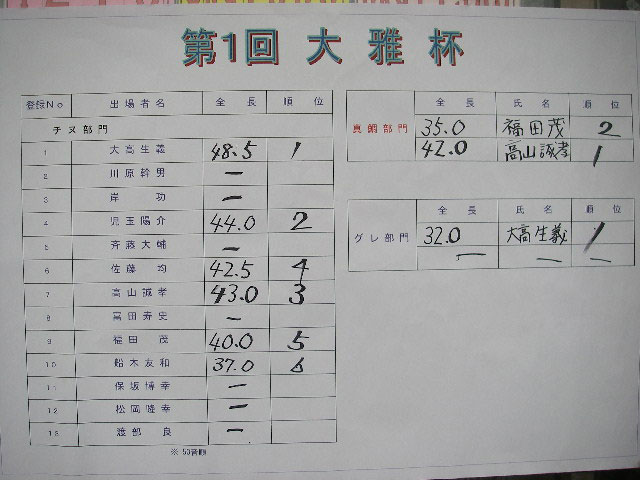 第1回 大 雅 杯
登録No 出場者名 全長 順位
チヌ部門
1 大高生義 48.5 1
2 川原幹男 ー
3 岸 功 ー
4 児玉陽介 44.0 2
5 斉藤大輔 ー
6 佐藤 均 42.5 4
7 高山誠孝 43.0 3
8 冨田寿史 ー
9 福田 茂 40.0 5
10 船木友和 37.0 6
11 保坂博幸 ー
12 松岡隆幸 ー
13 渡部 良 ー
※ 50音順
全長 氏名 順位
真鯛部門 35.0 福田茂 2
42.0 高山誠孝 1
全長 氏名 順位
グレ部門 32.0 大高生義 1
ー ー ー